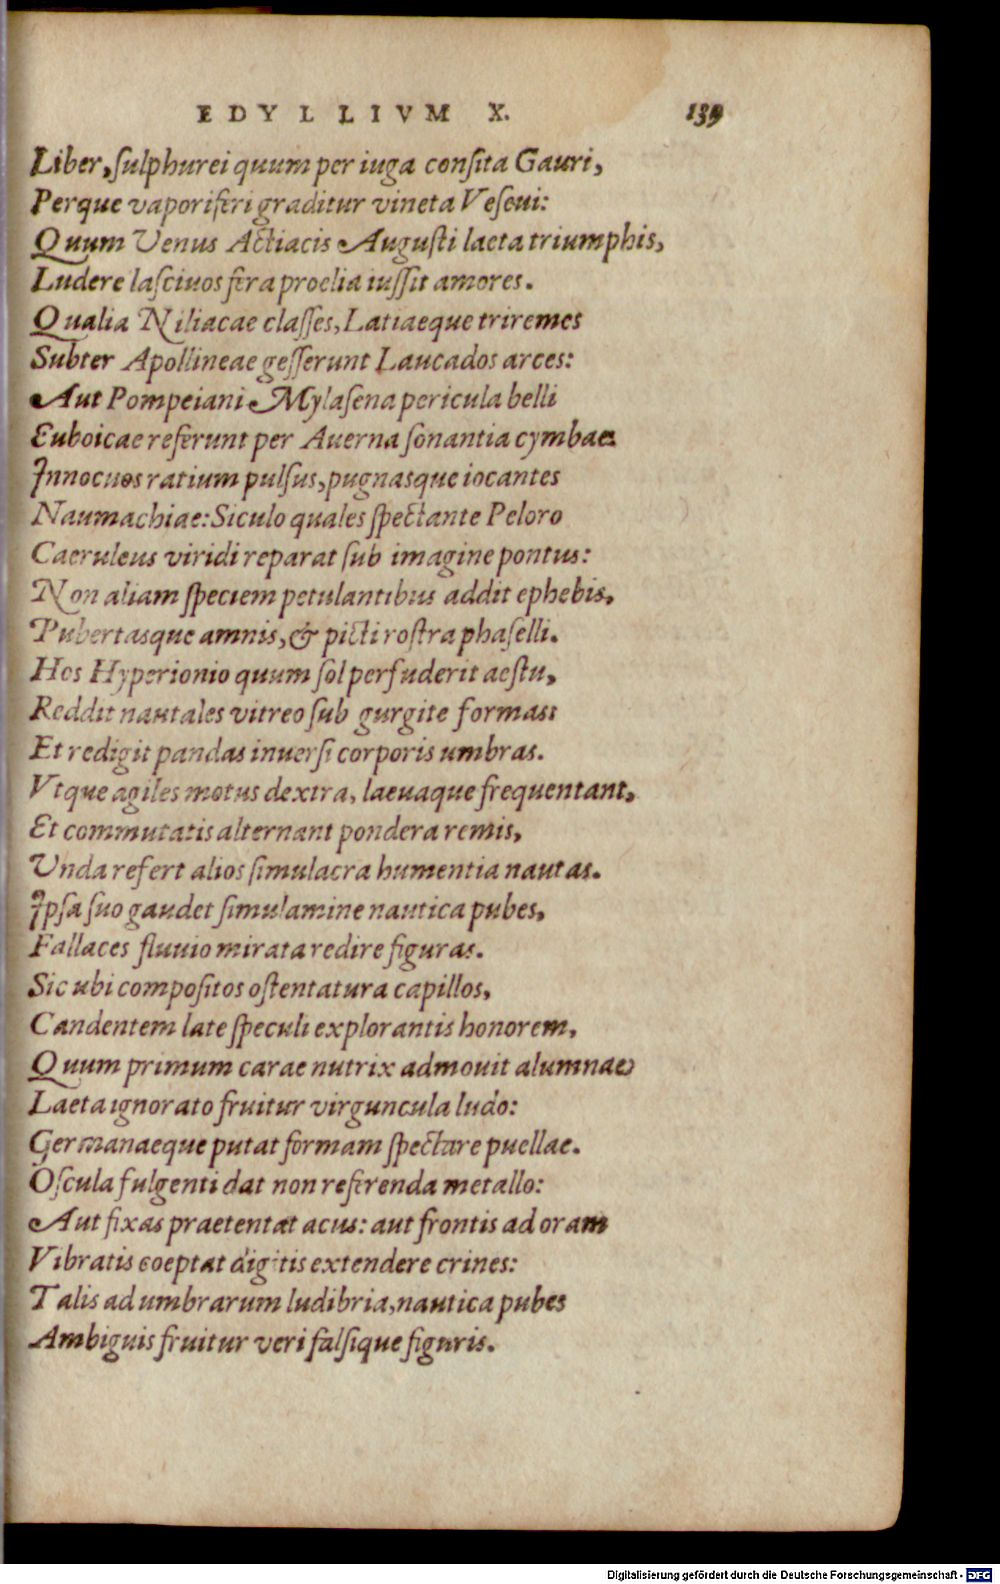 EDYLLIVM X. 139
Liber, ſulphurei quum per iuga conſita Gauri,
Perque vaporiferi graditur vineta Veſeui:
Quum Venus Actiacis Auguſti laeta triumphis,
Ludere laſciuos fera proelia iuſſit amores.
Qualia Niliacae claſſes, Latiaeque triremes
Subter Apollineae geſſerunt Laucados arces:
Aut Pompeiani Mylaſena pericula belli
Euboicae referunt per Auerna ſonantia cymbae
Innocuos ratium pulſus, pugnasque iocantes
Naumachiae: Siculo quales ſpectante Peloro
Caeruleus viridi reparat ſub imagine pontus:
Non aliam ſpeciem petulantibus addit ephebis,
Pubertasque amnis, & picti roſtra phaſelli.
Hos Hyperionio quum ſol perfuderit aeſtu,
Reddit nautales vitreo ſub gurgite formas:
Et redigit pandas inuerſi corporis umbras.
Vtque agiles motus dextra, laeuaque frequentant,
Et commutatis alternant pondera remis,
Unda refert alios ſimulacra humentia nautas.
Ipſa ſuo gaudet ſimulamine nautica pubes,
Fallaces fluuio mirata redire figuras.
Sic ubi compoſitos oſtentatura capillos,
Candentem late ſpeculi explorantis honorem,
Quum primum carae nutrix admouit alumnae
Laeta ignorato fruitur virguncula ludo:
Germanaeque putat formam ſpectare puellae.
Oſcula fulgenti dat non referenda metallo:
Aut fixas praetentat acus: aut frontis ad oram
Vibratis coeptat digitis extendere crines:
Talis ad umbrarum ludibria, nautica pubes
Ambiguis fruitur veri falſique figuris.
Digitalisierung gefördert durch die Deutsche Forschungsgemeinschaft - DFG